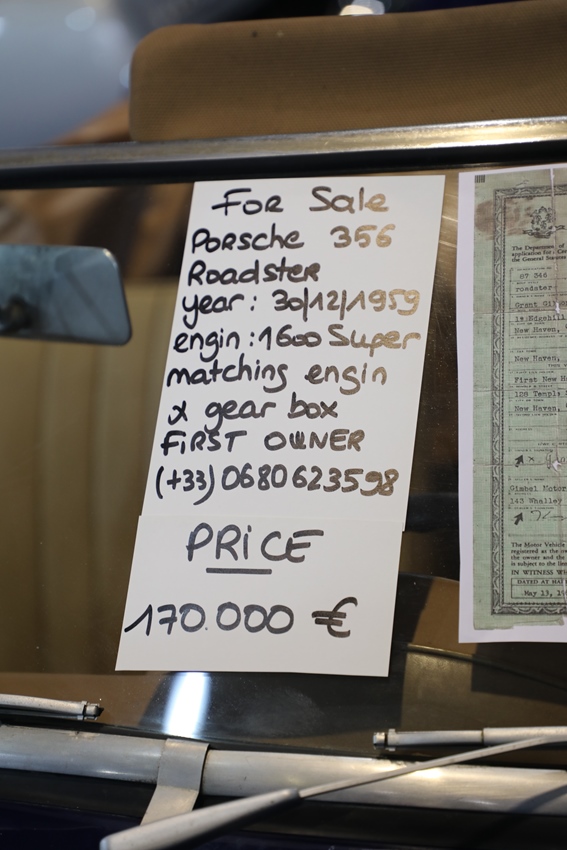 For Sale
Porsche 356
Roadster
year: 30/12/1959
engin: 1600 Super
matching engin
x gear box
FIRST OWNER
(+33) 0680623598
PRICE
170.000 €
The Department of
application for
the General Statutes
87 346
roadster
New Haven,
New Haven,
First New H
128 Templ
New Haven,
Gimbel Motor
143 Whalley
The Motor Vehicle
registered at the
the owner and the
is subject to the
IN WITNESS WH
DATED AT HA
May 13, 19